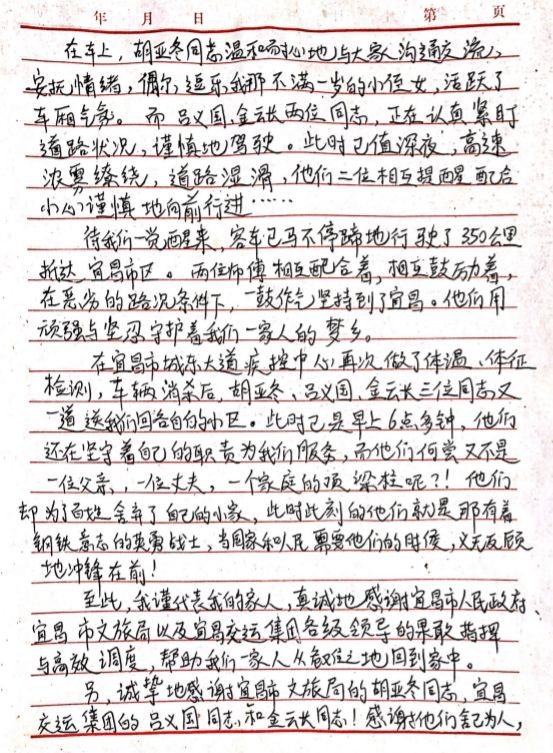 年 月 日 第 页
在车上，胡亚冬同志温和而耐心地与大家沟通交流，
安抚情绪，偶尔逗乐我那不满一岁的小侄女，活跃了
车厢气氛。而吕义国、金云长两位同志，正在认真紧盯
道路状况，谨慎地驾驶。此时已值深夜，高速
浓雾缭绕，道路湿滑，他们二位相互提醒配合
小心谨慎地向前行进……
待我们一觉醒来，客车已马不停蹄地行驶了350公里
抵达宜昌市区。两位师傅相互配合着，相互鼓励着，
在恶劣的路况条件下，一鼓作气坚持到了宜昌。他们用
顽强与坚忍守护着我们一家人的梦乡。
在宜昌市城东大道疾控中心再次做了体温、体征
检测，车辆消杀后，胡亚冬、吕义国、金云长三位同志又
一道送我们回各自的小区。此时已是早上6点多钟，他们
还在坚守着自己的职责为我们服务，而他们何尝又不是
一位父亲，一位丈夫，一个家庭的顶梁柱呢？！他们
却为了百姓舍弃了自己的小家，此时此刻的他们就是那有着
钢铁意志的英勇战士，当国家和人民需要他们的时候，义无反顾
地冲锋在前！
至此，我谨代表我的家人，真诚地感谢宜昌市人民政府、
宜昌市文旅局以及宜昌交运集团各级领导的果敢指挥
与高效调度，帮助我们一家人从敏感之地回到家中。
另，诚挚地感谢宜昌市文旅局的胡亚冬同志，宜昌
交运集团的吕义国同志和金云长同志！感谢他们舍己为人，